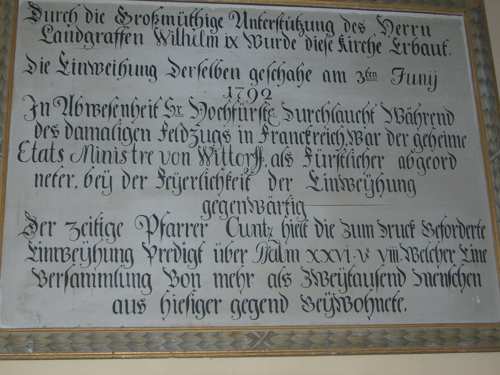 Durch die Großmüthige Unterstützung des Herrn
Landgraffen Wilhelm ix Wurde diese Kirche Erbaut.
Die Einweihung Derselben geschahe am 3ten Junij
1792
In Abwesenheit Sr. Hochfürstl. Durchlaucht Während
des damaligen Feldzugs in Franckreich War der geheime
Etats Ministre von Wittorff, als Fürstlicher abgeord
neter, beÿ der Feÿerlichkeit der Einweÿhung
gegenwärtig
Der zeitige Pfarrer Cuntz hielt die zum druck Beforderte
Einweÿhung Predigt über Psalm XXVI. v VIII. Welcher Eine
Versammlung Von mehr als Zweÿtausend menschen
aus hiesiger gegend BeÿWohnete.